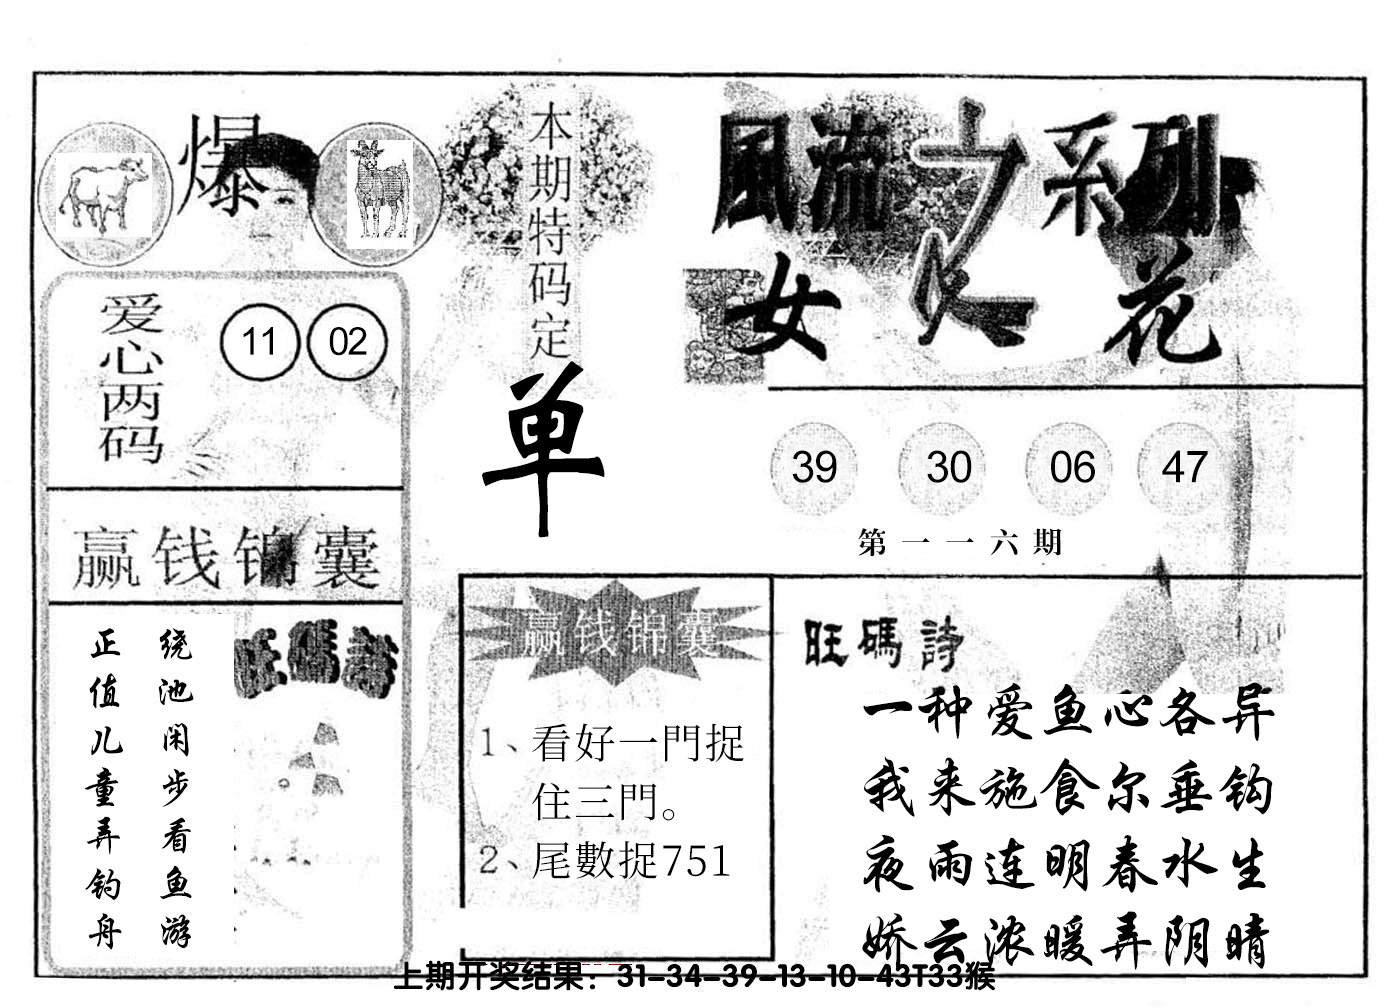 爆
本期特码定
单
風流之系列
女人花
爱心两码
11 02
39 30 06 47
第一一六期
赢钱锦囊
绕池闲步看鱼游
正值儿童弄钓舟
旺碼詩
赢钱锦囊
1、看好一門捉
住三門。
2、尾數捉751
旺碼詩
一种爱鱼心各异
我来施食尔垂钩
夜雨连明春水生
娇云浓暖弄阴晴
上期开奖结果：31-34-39-13-10-43T33猴